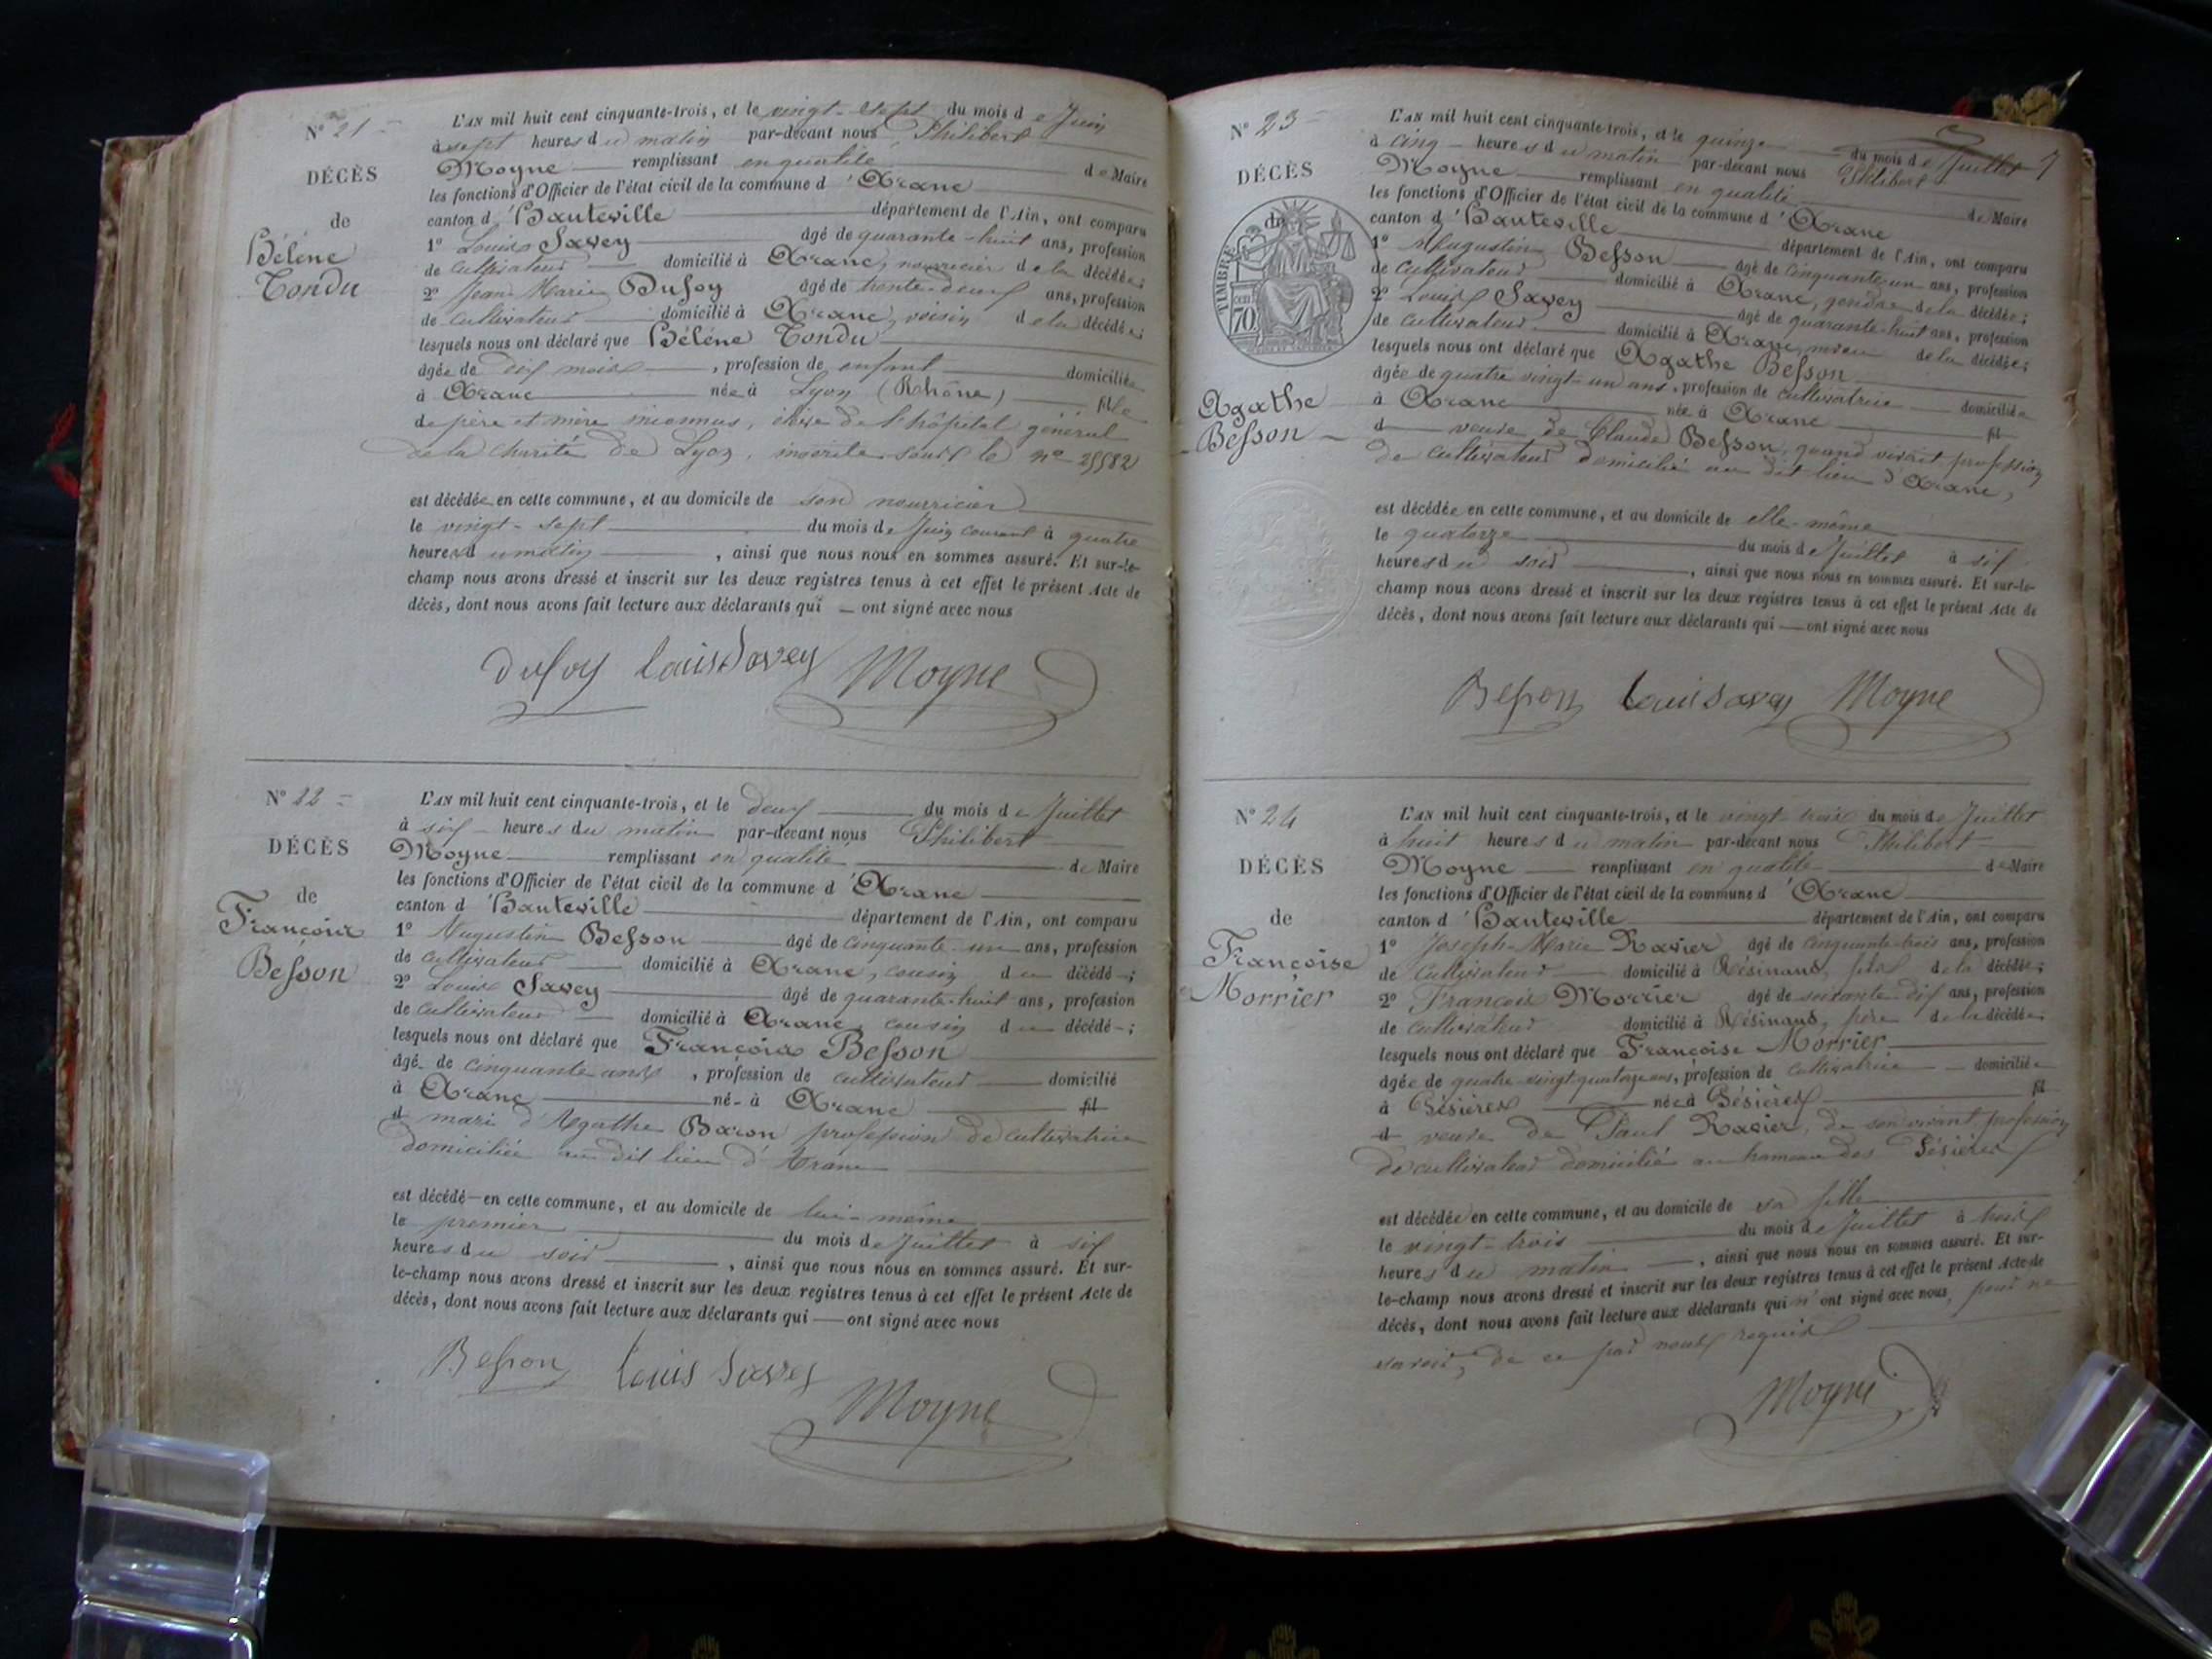 N° 21
DÉCÈS
de
Hélène
Tondu
L'AN mil huit cent cinquante-trois, et le vingt-sept du mois de Juin
à sept heures du matin par-devant nous Philibert
Moyne remplissant en qualité de Maire
les fonctions d'Officier de l'état civil de la commune d'Aranc
canton d'Hauteville département de l'Ain, ont comparu
1° Louis Savey âgé de quarante-huit ans, profession
de cultivateur domicilié à Aranc, nourricier de la décédée;
2° Jean Marie Dufoy âgé de trente-deux ans, profession
de cultivateur domicilié à Aranc, voisin de la décédée;
lesquels nous ont déclaré que Hélène Tondu
âgée de dix mois, profession de enfant domiciliée
à Aranc née à Lyon (Rhône) fille
de père et mère inconnus, élève de l'hôpital général
de la charité de Lyon, inscrite sous le n° 25582
est décédée en cette commune, et au domicile de son nourricier
le vingt-sept du mois de Juin courant à quatre
heures du matin, ainsi que nous nous en sommes assuré. Et sur-le-
champ nous avons dressé et inscrit sur les deux registres tenus à cet effet le présent Acte de
décès, dont nous avons fait lecture aux déclarants qui — ont signé avec nous
Dufoy Louis Savey Moyne
N° 22
DÉCÈS
de
François
Besson
L'AN mil huit cent cinquante-trois, et le deux du mois de Juillet
à six heures du matin par-devant nous Philibert
Moyne remplissant en qualité de Maire
les fonctions d'Officier de l'état civil de la commune d'Aranc
canton d'Hauteville département de l'Ain, ont comparu
1° Augustin Besson âgé de cinquante-un ans, profession
de cultivateur domicilié à Aranc, cousin du décédé;
2° Louis Savey âgé de quarante-huit ans, profession
de cultivateur domicilié à Aranc, cousin du décédé;
lesquels nous ont déclaré que François Besson
âgé de cinquante ans, profession de cultivateur domicilié
à Aranc né à Aranc fil
d mari d'Agathe Baron profession de cultivatrice
domiciliée au dit lieu d'Aranc
est décédé en cette commune, et au domicile de lui-même
le premier du mois de Juillet à six
heures du soir, ainsi que nous nous en sommes assuré. Et sur-
le-champ nous avons dressé et inscrit sur les deux registres tenus à cet effet le présent Acte de
décès, dont nous avons fait lecture aux déclarants qui — ont signé avec nous
Besson Louis Savey
Moyne
7
N° 23
DÉCÈS
de
TIMBRE
70
Agathe
Besson
L'AN mil huit cent cinquante-trois, et le quinze du mois de Juillet
à cinq heures du matin par-devant nous Philibert
Moyne remplissant en qualité de Maire
les fonctions d'Officier de l'état civil de la commune d'Aranc
canton d'Hauteville département de l'Ain, ont comparu
1° Augustin Besson âgé de cinquante-un ans, profession
de cultivateur domicilié à Aranc, gendre de la décédée;
2° Louis Savey âgé de quarante-huit ans, profession
de cultivateur domicilié à Aranc, neveu de la décédée;
lesquels nous ont déclaré que Agathe Besson
âgée de quatre vingt-un ans, profession de cultivatrice domiciliée
à Aranc née à Aranc fil
d veuve de Claude Besson, quand vivait profession
de cultivateur domicilié au dit lieu d'Aranc,
est décédée en cette commune, et au domicile de elle-même
le quatorze du mois de Juillet à six
heures du soir, ainsi que nous nous en sommes assuré. Et sur-le-
champ nous avons dressé et inscrit sur les deux registres tenus à cet effet le présent Acte de
décès, dont nous avons fait lecture aux déclarants qui — ont signé avec nous
Besson Louis Savey Moyne
N° 24
DÉCÈS
de
Françoise
Morrier
L'AN mil huit cent cinquante-trois, et le vingt-trois du mois de Juillet
à huit heures du matin par-devant nous Philibert
Moyne remplissant en qualité de Maire
les fonctions d'Officier de l'état civil de la commune d'Aranc
canton d'Hauteville département de l'Ain, ont comparu
1° Joseph-Marie Ravier âgé de cinquante-trois ans, profession
de cultivateur domicilié à Résinand, fils de la décédée;
2° François Morrier âgé de soixante-dix ans, profession
de cultivateur domicilié à Résinand, frère de la décédée;
lesquels nous ont déclaré que Françoise Morrier
âgée de quatre-vingt-quatorze ans, profession de cultivatrice domiciliée
à Pésières née à Pésières fil
d veuve de Paul Ravier, de son vivant profession
de cultivateur domicilié au hameau des Pésières
est décédée en cette commune, et au domicile de sa fille
le vingt-trois du mois de Juillet à trois
heures du matin, ainsi que nous nous en sommes assuré. Et sur-
le-champ nous avons dressé et inscrit sur les deux registres tenus à cet effet le présent Acte de
décès, dont nous avons fait lecture aux déclarants qui n'ont signé avec nous, pour ne
savoir, de ce par nous requis
Moyne